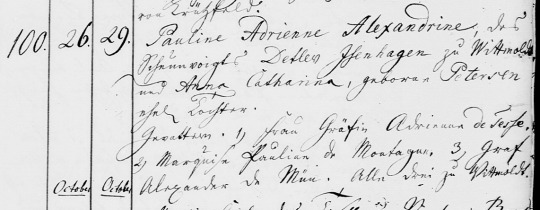 von Krützfeld.
100. 26. 29. Pauline Adrienne Alexandrine, des
Scheunvoigts Detlev Isenhagen zu Wittmoldt
und Anna Catharina, geboren Petersen
ehel. Tochter.
Gevattern. 1, Frau Gräfin Adrienne de Tesse.
2, Marquise Pauline de Montague. 3, Graf
October October Alexander de Mün. Alle drei zu Wittmoldt.